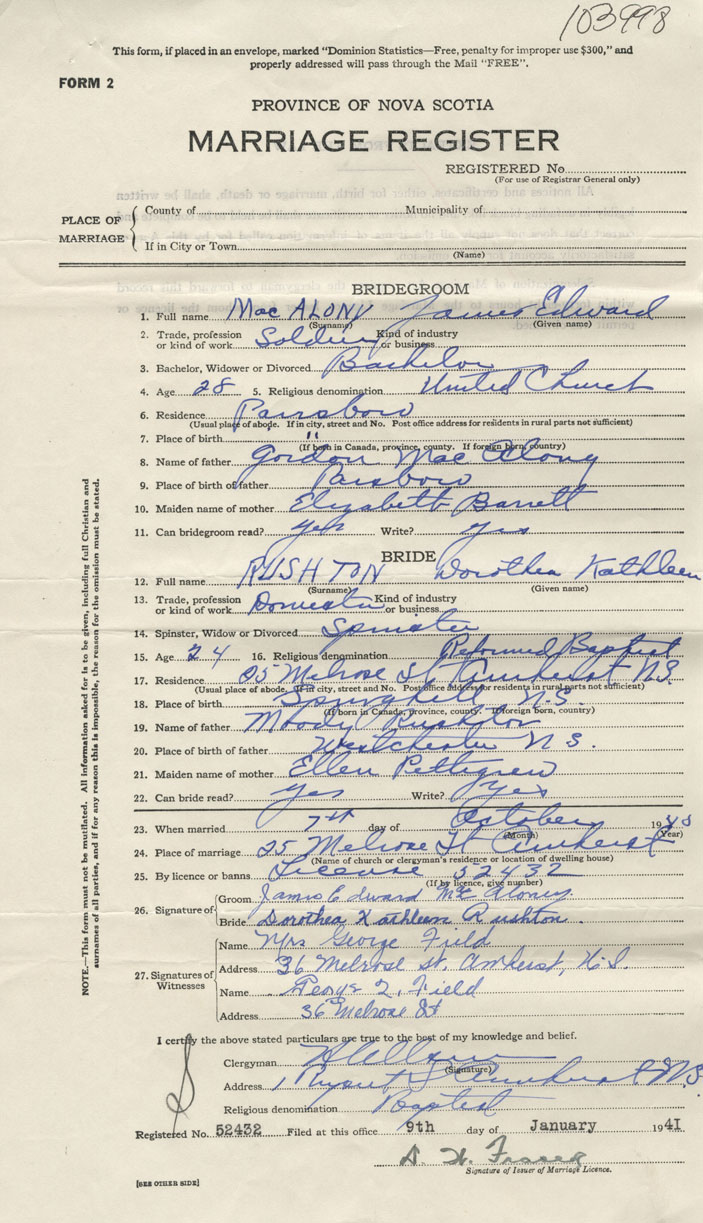 103998
This form, if placed in an envelope, marked "Dominion Statistics—Free, penalty for improper use $300," and
properly addressed will pass through the Mail "FREE".
FORM 2
PROVINCE OF NOVA SCOTIA
MARRIAGE REGISTER
REGISTERED No.
(For use of Registrar General only)
PLACE OF MARRIAGE
County of Municipality of
If in City or Town
(Name)
BRIDEGROOM
1. Full name Mac ALONY James Edward
(Surname) (Given name)
2. Trade, profession or kind of work Soldier Kind of industry or business
3. Bachelor, Widower or Divorced Bachelor
4. Age 28 5. Religious denomination United Church
6. Residence Parrsboro
(Usual place of abode. If in city, street and No. Post office address for residents in rural parts not sufficient)
7. Place of birth "
(If born in Canada, province, county. If foreign born, country)
8. Name of father Gordon Mac Alony
9. Place of birth of father Parsboro
10. Maiden name of mother Elizabeth Barrett
11. Can bridegroom read? yes Write? yes
BRIDE
12. Full name RUSHTON Dorothea Kathleen
(Surname) (Given name)
13. Trade, profession or kind of work Domestic Kind of industry or business
14. Spinster, Widow or Divorced Spinster
15. Age 24 16. Religious denomination Reformed Baptist
17. Residence 25 Melrose St Amherst N.S.
(Usual place of abode. If in city, street and No. Post office address for residents in rural parts not sufficient)
18. Place of birth Springhill N.S.
(If born in Canada, province, county. If foreign born, country)
19. Name of father Moody Rushton
20. Place of birth of father Westchester N S.
21. Maiden name of mother Ellen Pettigrew
22. Can bride read? yes Write? Yes
23. When married 7th day of October 1940
(Month) (Year)
24. Place of marriage 25 Melrose St Amherst
(Name of church or clergyman's residence or location of dwelling house)
25. By licence or banns License 52432
(If by licence, give number)
26. Signature of
Groom James Edward Mc Aloney
Bride Dorothea Kathleen Rushton.
27. Signatures of Witnesses
Name Mrs George Field
Address 36 Melrose St. Amherst, N.S.
Name George Field
Address 36 Melrose St
I certify the above stated particulars are true to the best of my knowledge and belief.
Clergyman
(Signature)
Address 1 Amherst N.S
Religious denomination Baptist
Registered No. 52432 Filed at this office 9th day of January 1941
Fraser
Signature of Issuer of Marriage Licence.
[SEE OTHER SIDE]
NOTE.—This form must not be mutilated. All information asked for is to be given, including full Christian and
surnames of all parties, and if for any reason this is impossible, the reason for the omission must be stated.